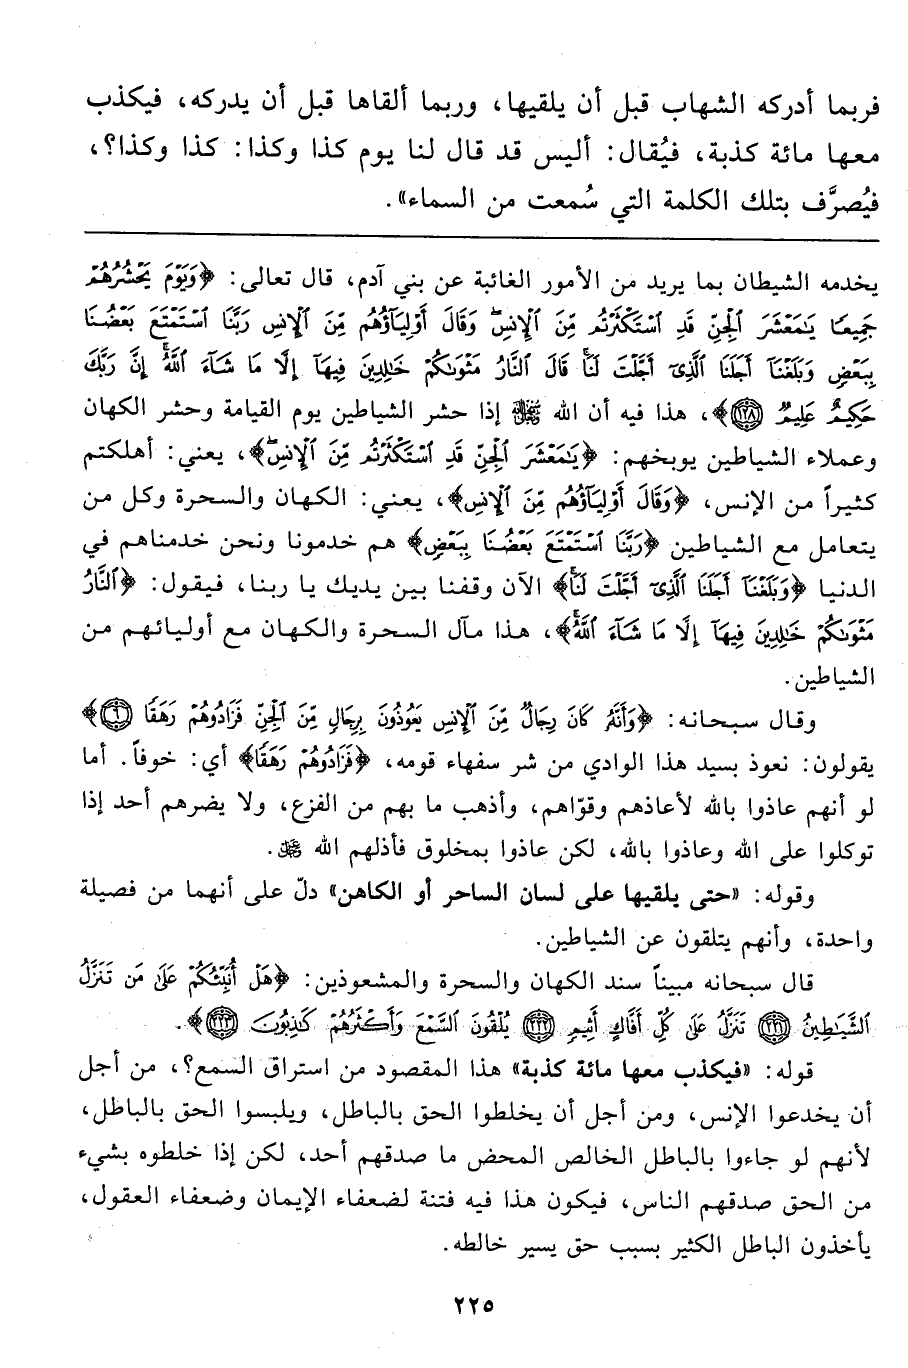 فربما أدركه الشهاب قبل أن يلقيها، وربما ألقاها قبل أن يدركه، فيكذب
معها مائة كذبة، فيُقال: أليس قد قال لنا يوم كذا وكذا: كذا وكذا؟،
فيُصرَّف بتلك الكلمة التي سُمعت من السماء».
يخدمه الشيطان بما يريد من الأمور الغائبة عن بني آدم، قال تعالى: ﴿وَيَوْمَ يَحْشُرُهُمْ
جَمِيعًا يَٰمَعْشَرَ ٱلْجِنِّ قَدِ ٱسْتَكْثَرْتُم مِّنَ ٱلْإِنسِۖ وَقَالَ أَوْلِيَآؤُهُم مِّنَ ٱلْإِنسِ رَبَّنَا ٱسْتَمْتَعَ بَعْضُنَا
بِبَعْضٍ وَبَلَغْنَآ أَجَلَنَا ٱلَّذِىٓ أَجَّلْتَ لَنَاۚ قَالَ ٱلنَّارُ مَثْوَىٰكُمْ خَٰلِدِينَ فِيهَآ إِلَّا مَا شَآءَ ٱللَّهُۗ إِنَّ رَبَّكَ
حَكِيمٌ عَلِيمٌ ١٢٨﴾، هذا فيه أن الله ﷻ إذا حشر الشياطين يوم القيامة وحشر الكهان
وعملاء الشياطين يوبخهم: ﴿يَٰمَعْشَرَ ٱلْجِنِّ قَدِ ٱسْتَكْثَرْتُم مِّنَ ٱلْإِنسِۖ﴾، يعني: أهلكتم
كثيراً من الإنس، ﴿وَقَالَ أَوْلِيَآؤُهُم مِّنَ ٱلْإِنسِ﴾، يعني: الكهان والسحرة وكل من
يتعامل مع الشياطين ﴿رَبَّنَا ٱسْتَمْتَعَ بَعْضُنَا بِبَعْضٍ﴾ هم خدمونا ونحن خدمناهم في
الدنيا ﴿وَبَلَغْنَآ أَجَلَنَا ٱلَّذِىٓ أَجَّلْتَ لَنَاۚ﴾ الآن وقفنا بين يديك يا ربنا، فيقول: ﴿ٱلنَّارُ
مَثْوَىٰكُمْ خَٰلِدِينَ فِيهَآ إِلَّا مَا شَآءَ ٱللَّهُۗ﴾، هذا مآل السحرة والكهان مع أوليائهم من
الشياطين.
وقال سبحانه: ﴿وَأَنَّهُۥ كَانَ رِجَالٌ مِّنَ ٱلْإِنسِ يَعُوذُونَ بِرِجَالٍ مِّنَ ٱلْجِنِّ فَزَادُوهُمْ رَهَقًا ٦﴾
يقولون: نعوذ بسيد هذا الوادي من شر سفهاء قومه، ﴿فَزَادُوهُمْ رَهَقًا﴾ أي: خوفاً. أما
لو أنهم عاذوا بالله لأعاذهم وقوّاهم، وأذهب ما بهم من الفزع، ولا يضرهم أحد إذا
توكلوا على الله وعاذوا بالله، لكن عاذوا بمخلوق فأذلهم الله ﷻ.
وقوله: «حتى يلقيها على لسان الساحر أو الكاهن» دلّ على أنهما من فصيلة
واحدة، وأنهم يتلقون عن الشياطين.
قال سبحانه مبيناً سند الكهان والسحرة والمشعوذين: ﴿هَلْ أُنَبِّئُكُمْ عَلَىٰ مَن تَنَزَّلُ
ٱلشَّيَٰطِينُ ٢٢١ تَنَزَّلُ عَلَىٰ كُلِّ أَفَّاكٍ أَثِيمٍ ٢٢٢ يُلْقُونَ ٱلسَّمْعَ وَأَكْثَرُهُمْ كَٰذِبُونَ ٢٢٣﴾.
قوله: «فيكذب معها مائة كذبة» هذا المقصود من استراق السمع؟، من أجل
أن يخدعوا الإنس، ومن أجل أن يخلطوا الحق بالباطل، ويلبسوا الحق بالباطل،
لأنهم لو جاءوا بالباطل الخالص المحض ما صدقهم أحد، لكن إذا خلطوه بشيء
من الحق صدقهم الناس، فيكون هذا فيه فتنة لضعفاء الإيمان وضعفاء العقول،
يأخذون الباطل الكثير بسبب حق يسير خالطه.
٢٢٥